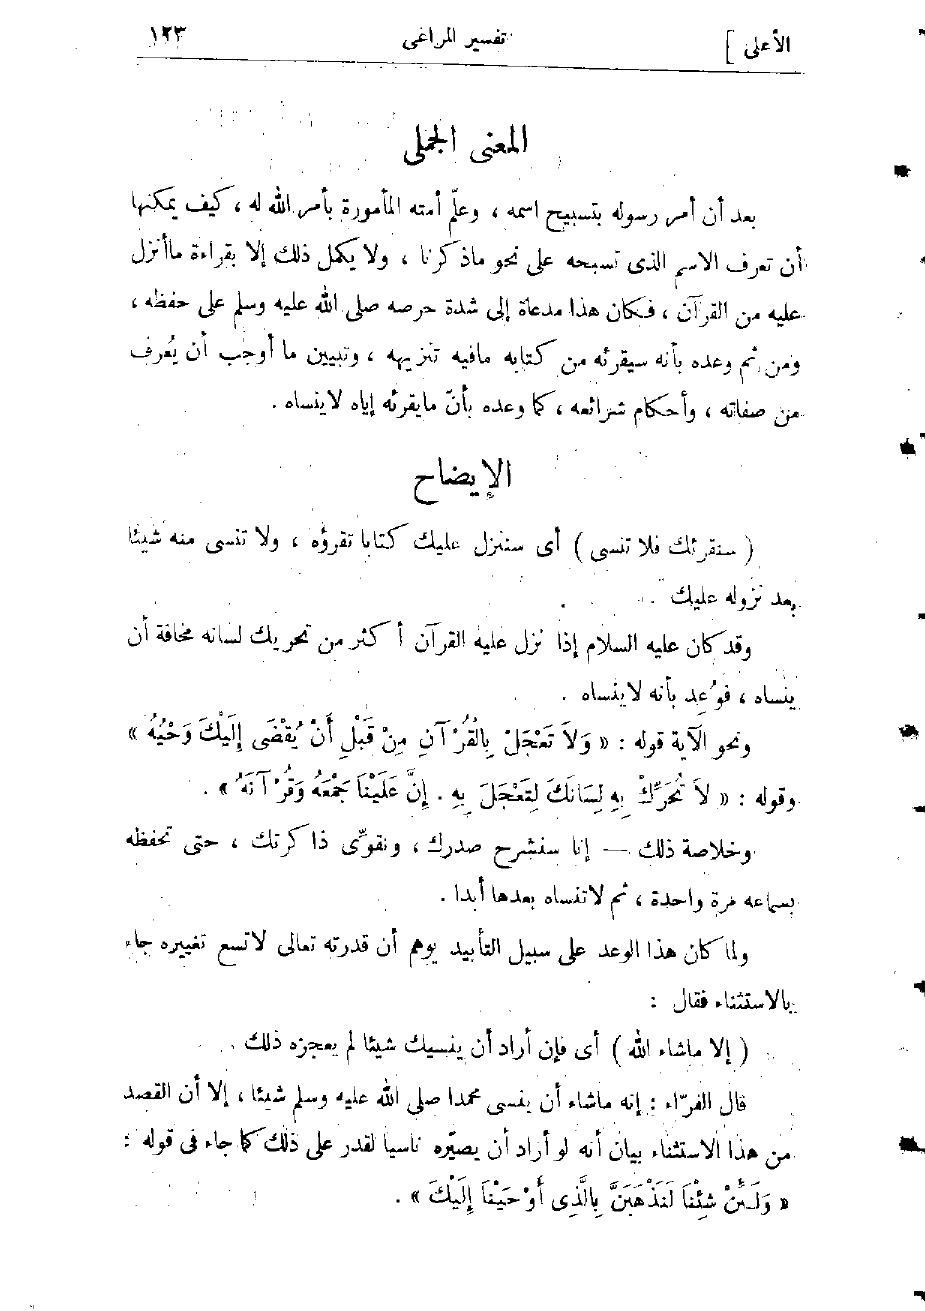 الأعلى ]
تفسير المراغى
١٢٣
المعنى الجملى
بعد أن أمر رسوله بتسبيح اسمه ، وعلّم أمته المأمورة بأمر الله له ، كيف يمكنها
أن تعرف الاسم الذى تسبحه على نحو ماذكرنا ، ولا يكمل ذلك إلا بقراءة ماأنزل
عليه من القرآن ، فكان هذا مدعاة إلى شدة حرصه صلى الله عليه وسلم على حفظه ،
ومن ثم وعده بأنه سيقرئه من كتابه مافيه تنزيهه ، وتبيين ما أوجب أن يُعرف
من صفاته ، وأحكام شرائعه ، كما وعده بأنّ مايقرئه إياه لاينساه .
الإيضاح
( سنقرئك فلا تنسى ) أى سننزل عليك كتابا تقرؤه ، ولا تنسى منه شيئا
بعد نزوله عليك .
وقد كان عليه السلام إذا نزل عليه القرآن أكثر من تحريك لسانه مخافة أن
ينساه ، فوُعِد بأنه لاينساه .
ونحو الآية قوله : « وَلَا تَعْجَلْ بِالْقُرْآنِ مِنْ قَبْلِ أَنْ يُقْضَى إِلَيْكَ وَحْيُهُ »
وقوله : « لَا تُحَرِّكْ بِهِ لِسَانَكَ لِتَعْجَلَ بِهِ . إِنَّ عَلَيْنَا جَمْعَهُ وَقُرْآنَهُ » .
وخلاصة ذلك — إنا سنشرح صدرك ، ونقوّى ذاكرتك ، حتى تحفظه
بسماعه مرة واحدة ، ثم لاتنساه بعدها أبدا .
ولما كان هذا الوعد على سبيل التأبيد يوهم أن قدرته تعالى لاتسع تغييره جاء
بالاستثناء فقال :
( إلا ماشاء الله ) أى فإن أراد أن ينسيك شيئا لم يعجزه ذلك .
قال الفرّاء : إنه ماشاء أن ينسى محمدا صلى الله عليه وسلم شيئا ، إلا أن القصد
من هذا الاستثناء بيان أنه لو أراد أن يصيّره ناسيا لقدر على ذلك كما جاء فى قوله :
« وَلَئِنْ شِئْنَا لَنَذْهَبَنَّ بِالَّذِى أَوْحَيْنَا إِلَيْكَ » .